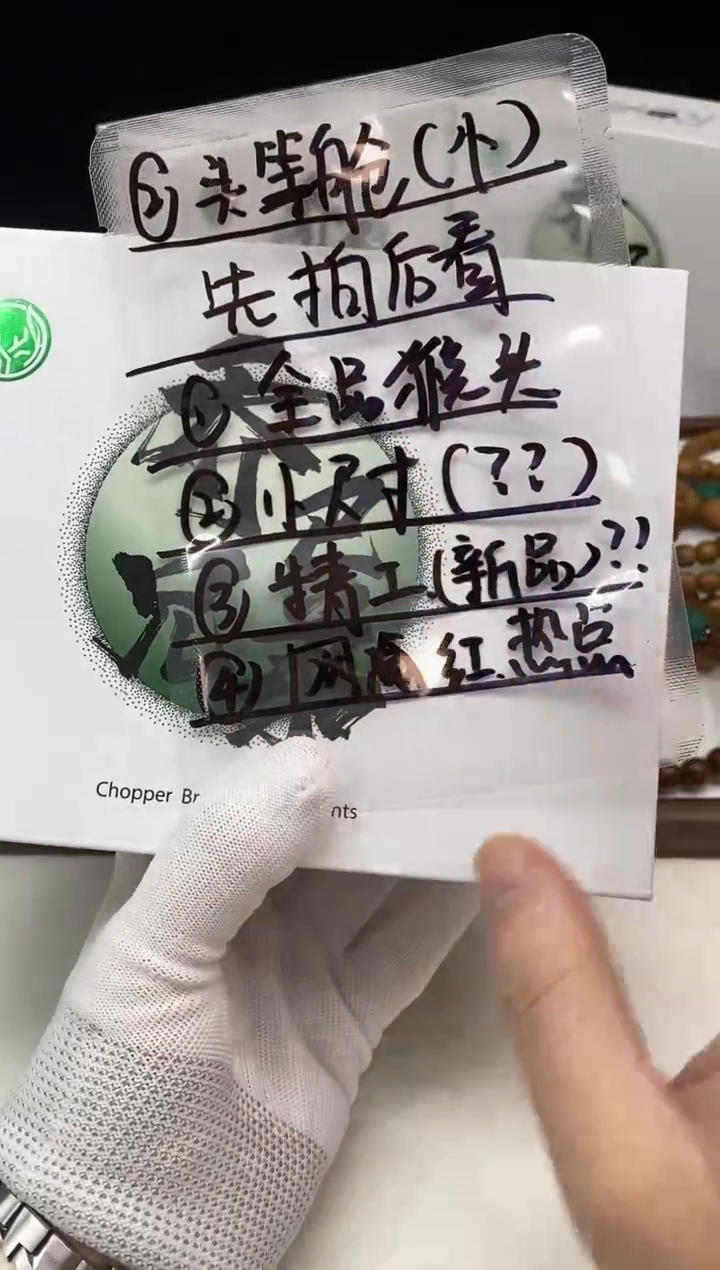 ② 头等舱(小)
先拍后看
① 全品猴头
② 小尺寸(??)
③ 精工(新品)??
④ 网红.热点
Chopper Br nts